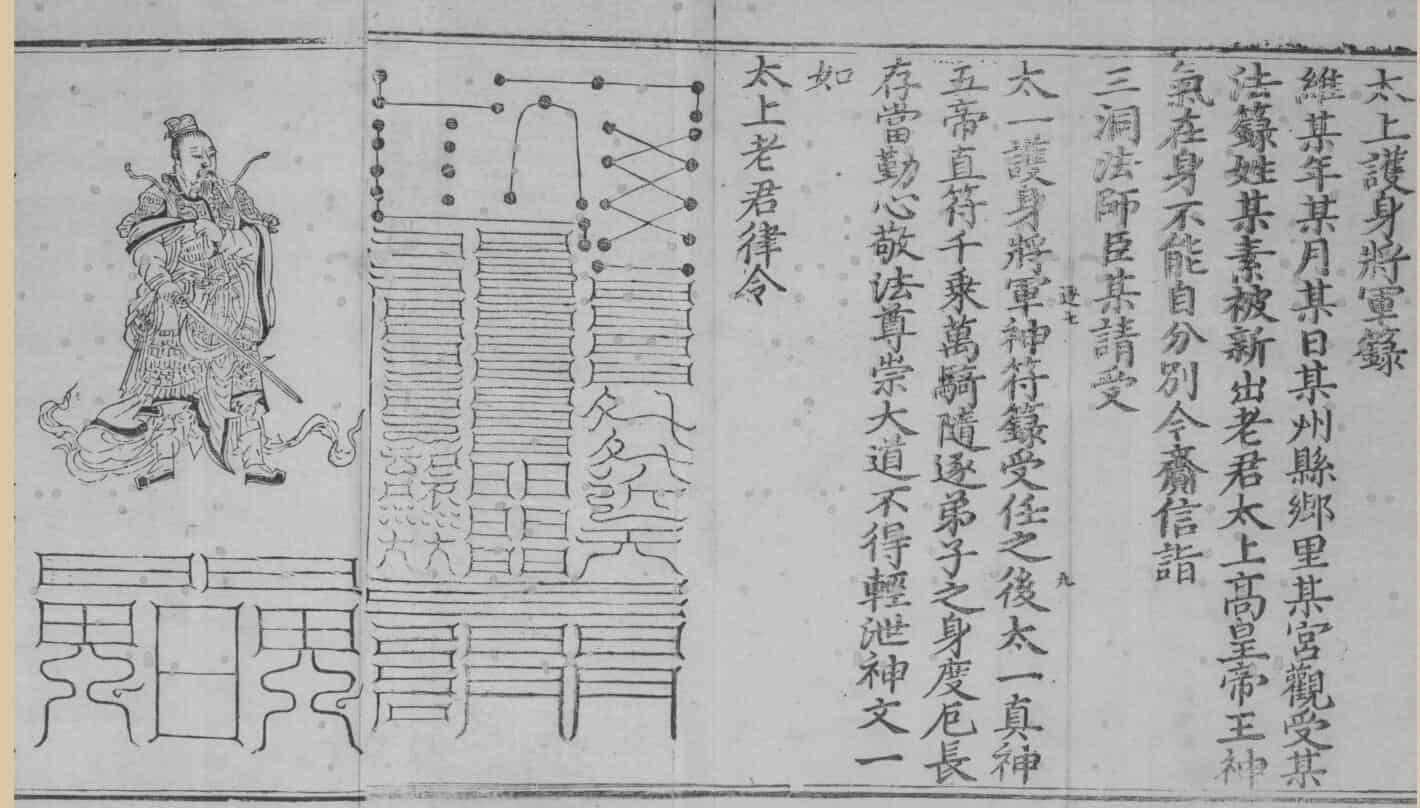 太上護身將軍籙
維某年某月某日某州縣鄉里某宮觀受某
法籙姓某素被新出老君太上高皇帝王神
氣在身不能自分別今齎信詣
三洞法師臣某請受
太一護身將軍神符籙受任之後太一真神
五帝直符千乘萬騎隨逐弟子之身度厄長
存當勤心敬法尊崇大道不得輕泄神文一
如
太上老君律令